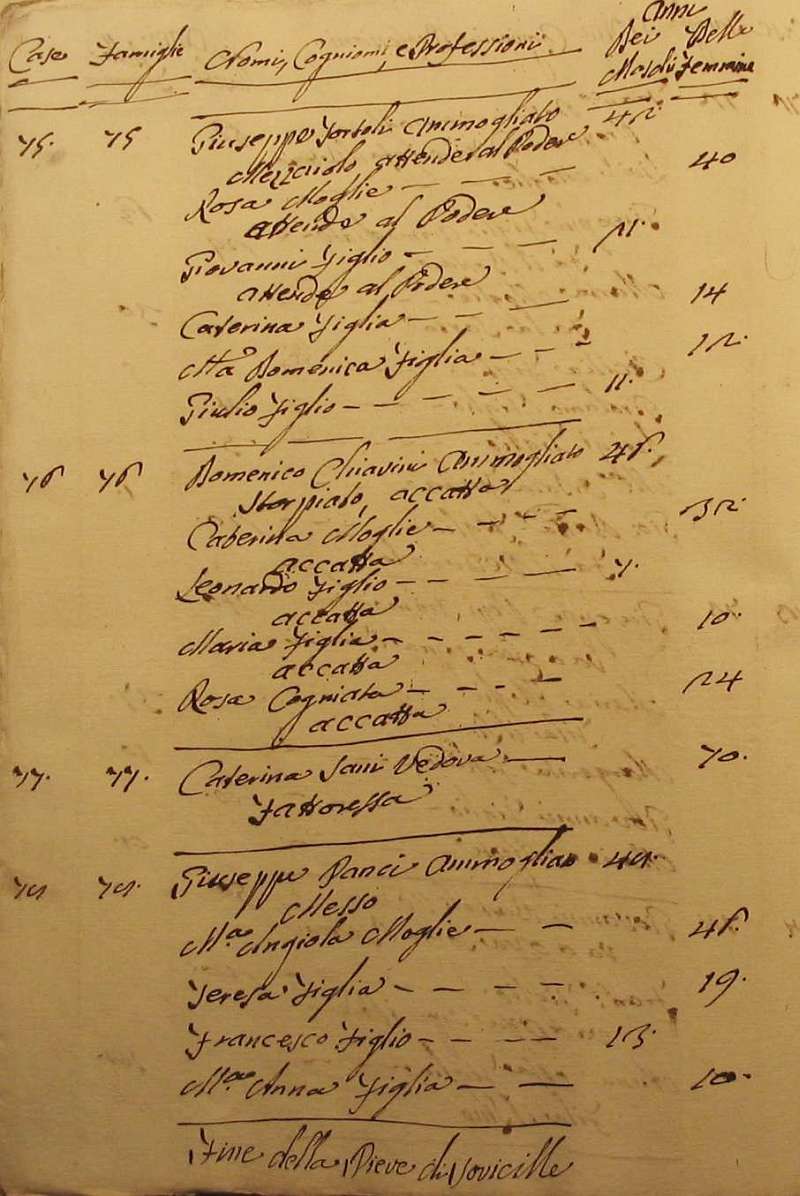 Anni
Case Famiglie Nomi, Cogniomi, e Professioni Dei Delle
Maschi Femmine
75. 75 Giuseppe Tortoli Ammogliato 42
Mezzaiolo attende al Podere
Rosa Moglie — — — 40
attende al Podere
Giovanni Figlio — — —
attende al Podere
Caterina Figlia — — — 14
Ma Domenica Figlia — — — 12.
Giulio Figlio — — — — — 11.
76 76 Domenico Chiavini Ammogliato 46.
Storpiato, accatta
Caterina Moglie — — — — 32.
accatta
Leonardo Figlio — — — — 7.
accatta
Maria Figlia — — — — — — 10.
accatta
Rosa Cogniata — — — 24
accatta
77. 77. Caterina Sani Vedova — 70.
Fattoressa
78 78. Giuseppe Panci Ammogliato
Messo
Ma Angiola Moglie — — — 46.
Teresa Figlia — — — — 19.
Francesco Figlio — — — — 13.
Ma Anna Figlia — — 10.
Fine della Pieve di Sovicille